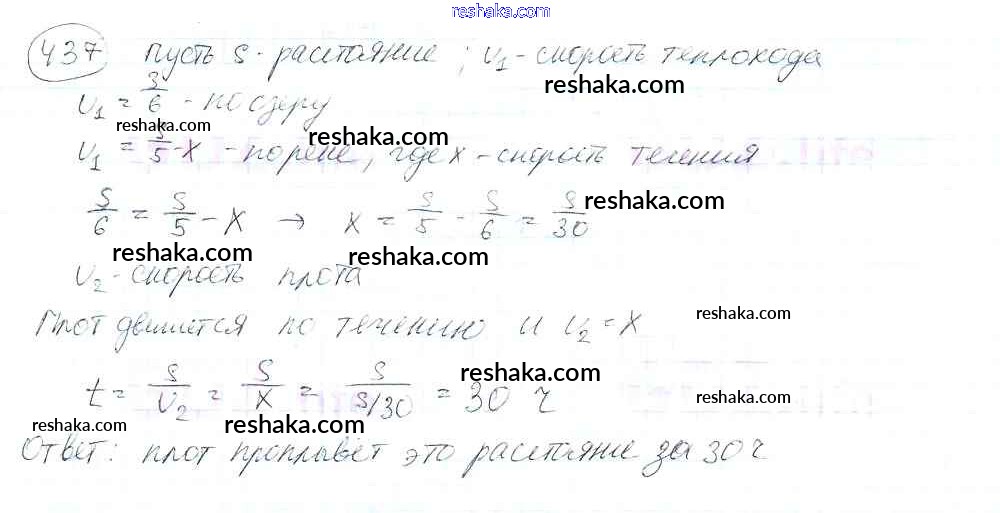 reshaka.com
437 пусть S - расстояние; v₁ - скорость теплохода
reshaka.com
v₁ = S/6 - по озеру
reshaka.com
reshaka.com
v₁ = S/5 - x - по реке, где x - скорость течения
reshaka.com
S/6 = S/5 - x → x = S/5 - S/6 = S/30
reshaka.com
reshaka.com
v₂ - скорость плота
reshaka.com
Плот движется по течению и v₂ = x
reshaka.com
t = S/v₂ = S/x = S/S/30 = 30 ч
reshaka.com
reshaka.com
reshaka.com
Ответ: плот проплывёт это расстояние за 30 ч